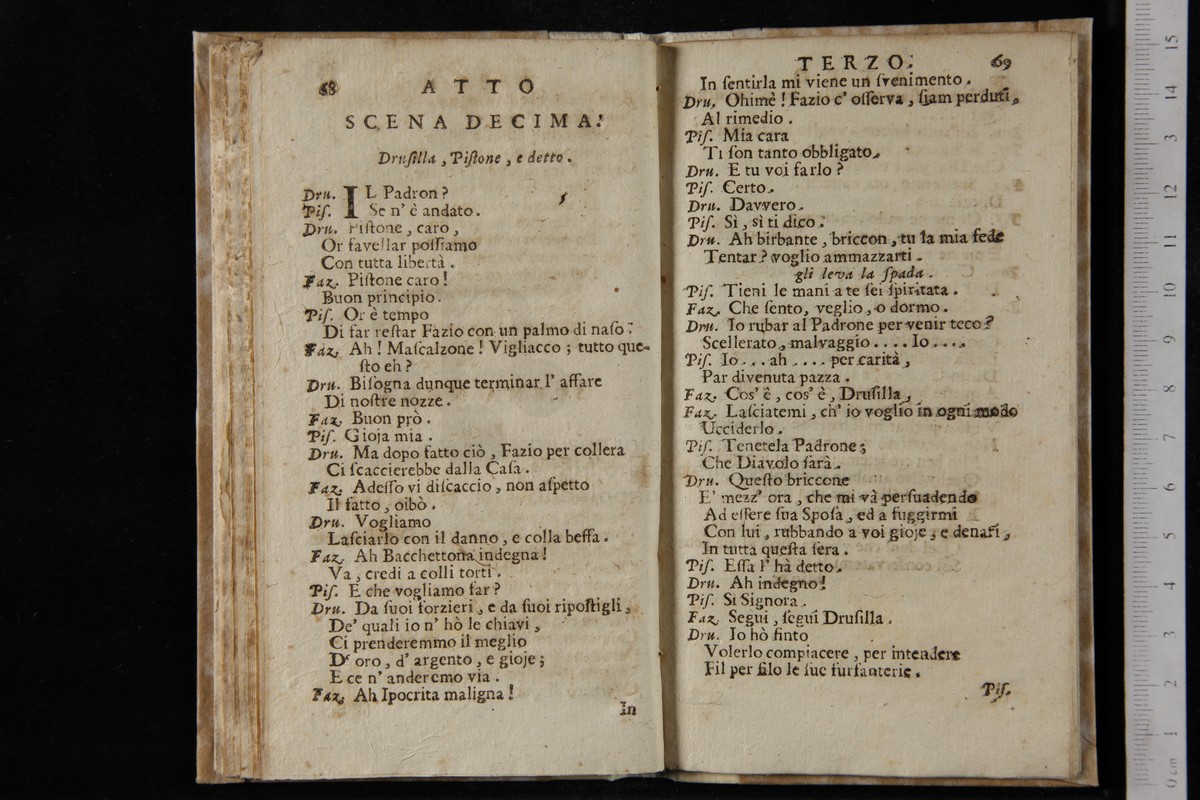 68 ATTO
SCENA DECIMA.
Druſilla, Piſtone, e detto.
Dru. IL Padron?
Piſ. Se n' è andato.
Dru. Piſtone, caro,
Or favellar poſſiamo
Con tutta libertà.
Faz. Piſtone caro!
Buon principio.
Piſ. Or è tempo
Di far reſtar Fazio con un palmo di naſo.
Faz. Ah! Maſcalzone! Vigliacco; tutto que-
ſto eh?
Dru. Biſogna dunque terminar l' affare
Di noſtre nozze.
Faz. Buon prò.
Piſ. Gioja mia.
Dru. Ma dopo fatto ciò, Fazio per collera
Ci ſcaccierebbe dalla Caſa.
Faz. Adeſſo vi diſcaccio, non aſpetto
Il fatto, oibò.
Dru. Vogliamo
Laſciarlo con il danno, e colla beffa.
Faz. Ah Bacchettona indegna!
Va, credi a colli torti.
Piſ. E che vogliamo far?
Dru. Da ſuoi forzieri, e da ſuoi ripoſtigli,
De' quali io n' hò le chiavi,
Ci prenderemmo il meglio
D' oro, d' argento, e gioje;
E ce n' anderemo via.
Faz. Ah Ipocrita maligna!
In
TERZO. 69
In ſentirla mi viene un ſvenimento.
Dru. Ohimè! Fazio c' oſſerva, ſiam perduti,
Al rimedio.
Piſ. Mia cara
Ti ſon tanto obbligato.
Dru. E tu voi farlo?
Piſ. Certo.
Dru. Davvero.
Piſ. Sì, sì ti dico.
Dru. Ah birbante, briccon, tu la mia fede
Tentar? voglio ammazzarti.
gli leva la ſpada.
Piſ. Tieni le mani a te ſei ſpiritata.
Faz. Che ſento, veglio, o dormo.
Dru. Io rubar al Padrone per venir teco?
Scellerato, malvaggio.... Io....
Piſ. Io... ah.... per carità,
Par divenuta pazza.
Faz. Cos' è, cos' è, Druſilla,
Faz. Laſciatemi, ch' io voglio in ogni modo
Ucciderlo.
Piſ. Tenetela Padrone;
Che Diavolo ſarà.
Dru. Queſto briccone
E' mezz' ora, che mi và perſuadendo
Ad eſſere ſua Spoſa, ed a fuggirmi
Con lui, rubbando a voi gioje, e denari,
In tutta queſta ſera.
Piſ. Eſſa l' hà detto.
Dru. Ah indegno!
Piſ. Si Signora.
Faz. Segui, ſegui Druſilla.
Dru. Io hò finto
Volerlo compiacere, per intendere
Fil per filo le ſue furfanterie.
Piſ.